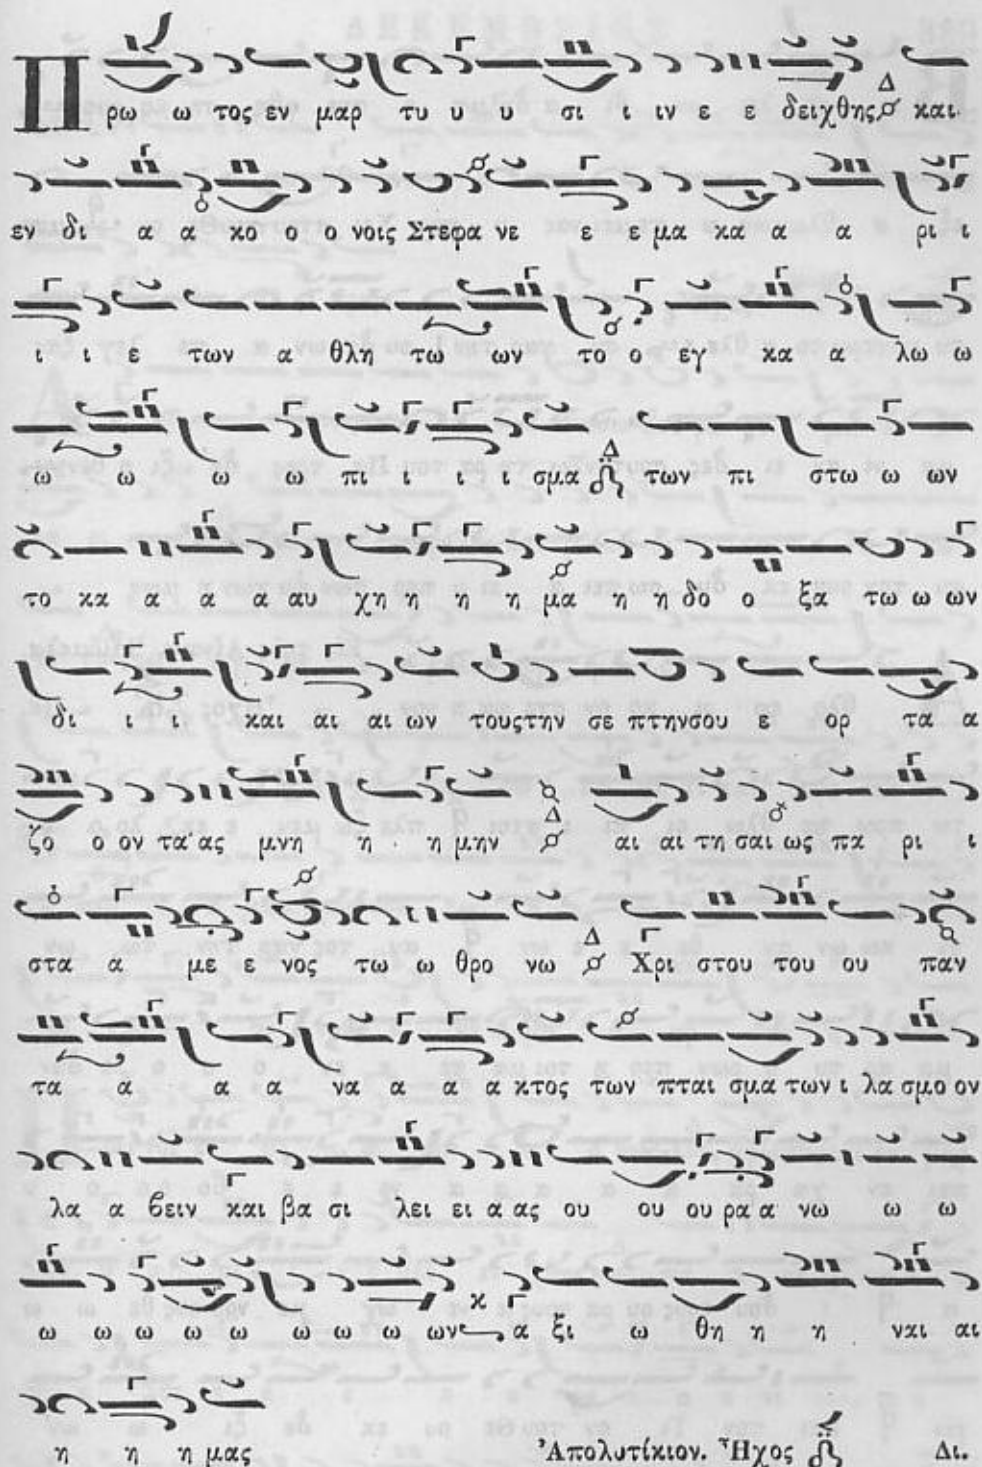 Πρω ω τος εν μαρ τυ υ υ σι ι ιν ε ε δειχθης Δ και
εν δι α α κο ο ο νοις Στεφα νε ε ε μα κα α α ρι ι
ι ι ε των α θλη τω ων το ο εγ κα α λω ω
ω ω ω ω πι ι ι ι σμα Δ των πι στω ω ων
το κα α α α αυ χη η η η μα η η δο ο ξα τω ω ων
δι ι ι και αι αι ων τους την σε πτην σου ε ορ τα α
ζο ο ον τα ας μνη η η μην Δ αι αι τη σαι ως πα ρι ι
στα α με ε νος τω ω θρο νω Δ Χρι στου του ου παν
τα α α α να α α α κτος των πται σμα των ι λα σμο ον
λα α βειν και βα σι λει ει α ας ου ου ου ρα α νω ω ω
ω ω ω ω ω ω ω ω ων κ α ξι ω θη η η ναι αι
η η η μας Ἀπολυτίκιον. Ἦχος Δι.